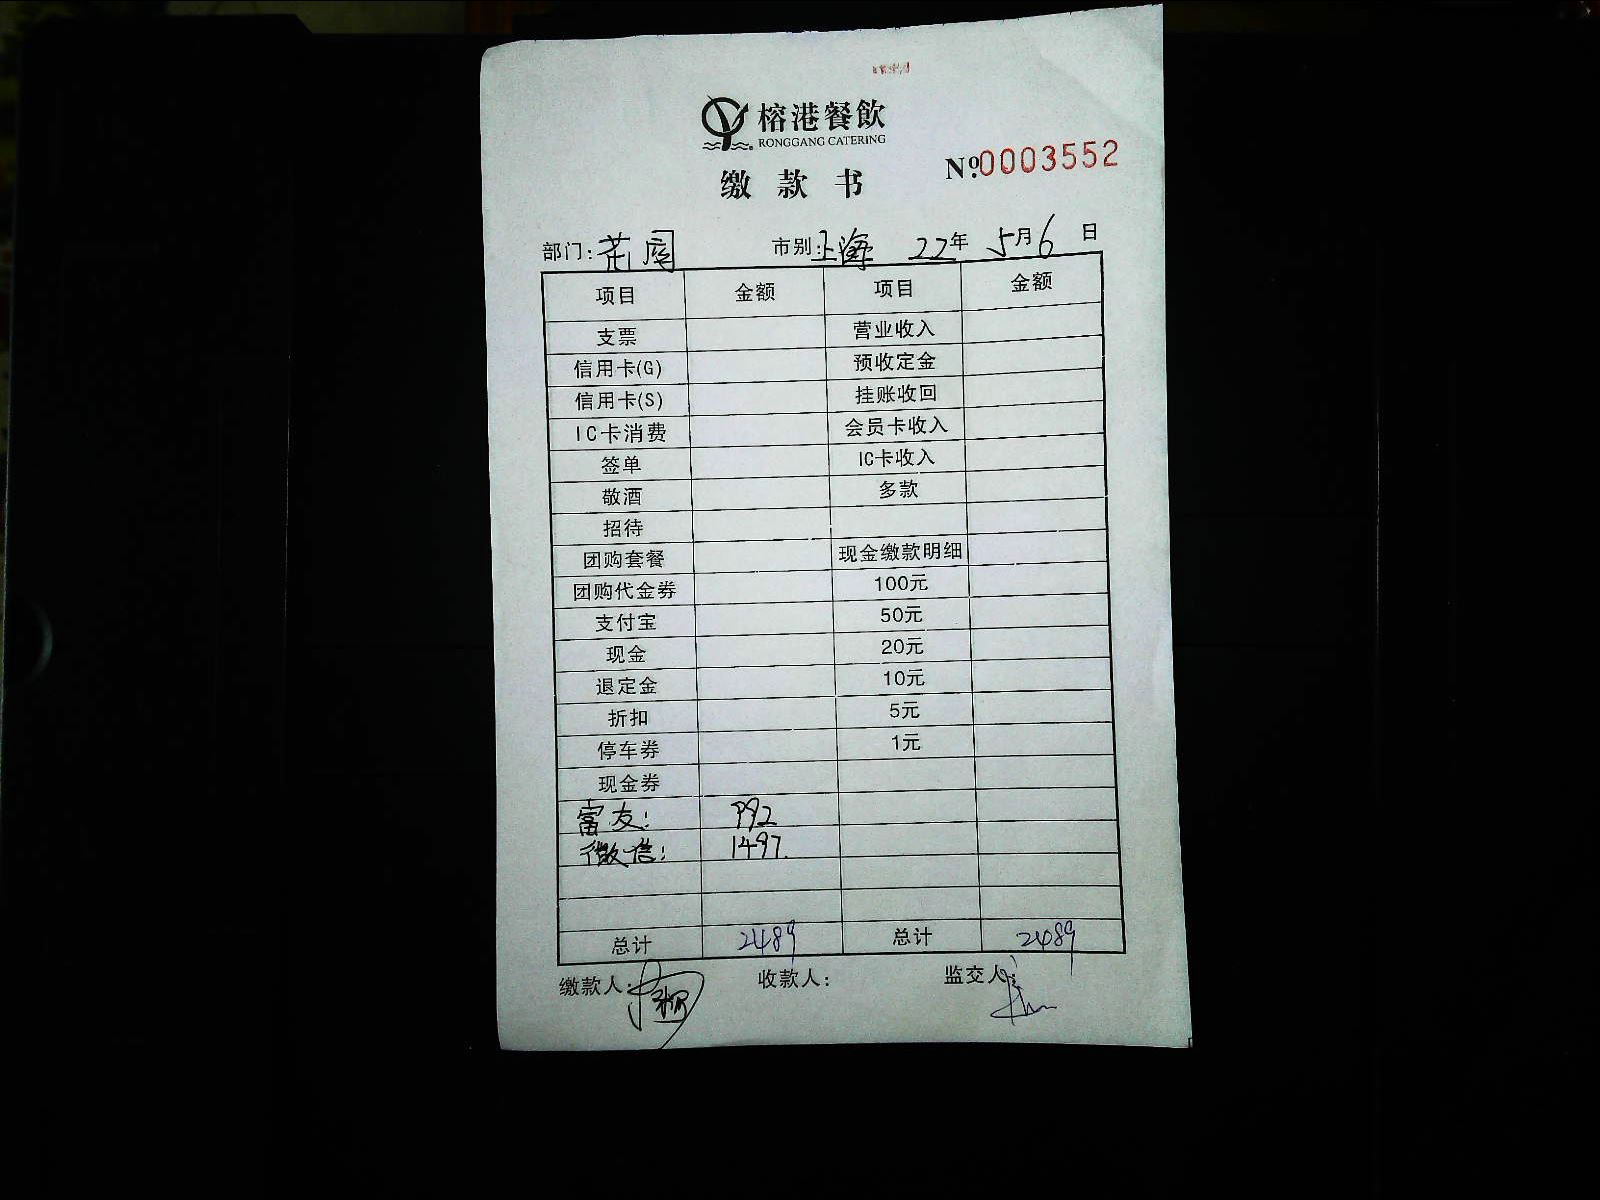 榕港餐飲
RONGGANG CATERING
缴款书
№0003552
部门: 花园 市别: 上海 22年 5月6日
项目 金额 项目 金额
支票 营业收入
信用卡(G) 预收定金
信用卡(S) 挂账收回
IC卡消费 会员卡收入
签单 IC卡收入
敬酒 多款
招待
团购套餐 现金缴款明细
团购代金券 100元
支付宝 50元
现金 20元
退定金 10元
折扣 5元
停车券 1元
现金券
富友: 992
微信: 1497.
总计 2489 总计 2489
缴款人: 收款人: 监交人: